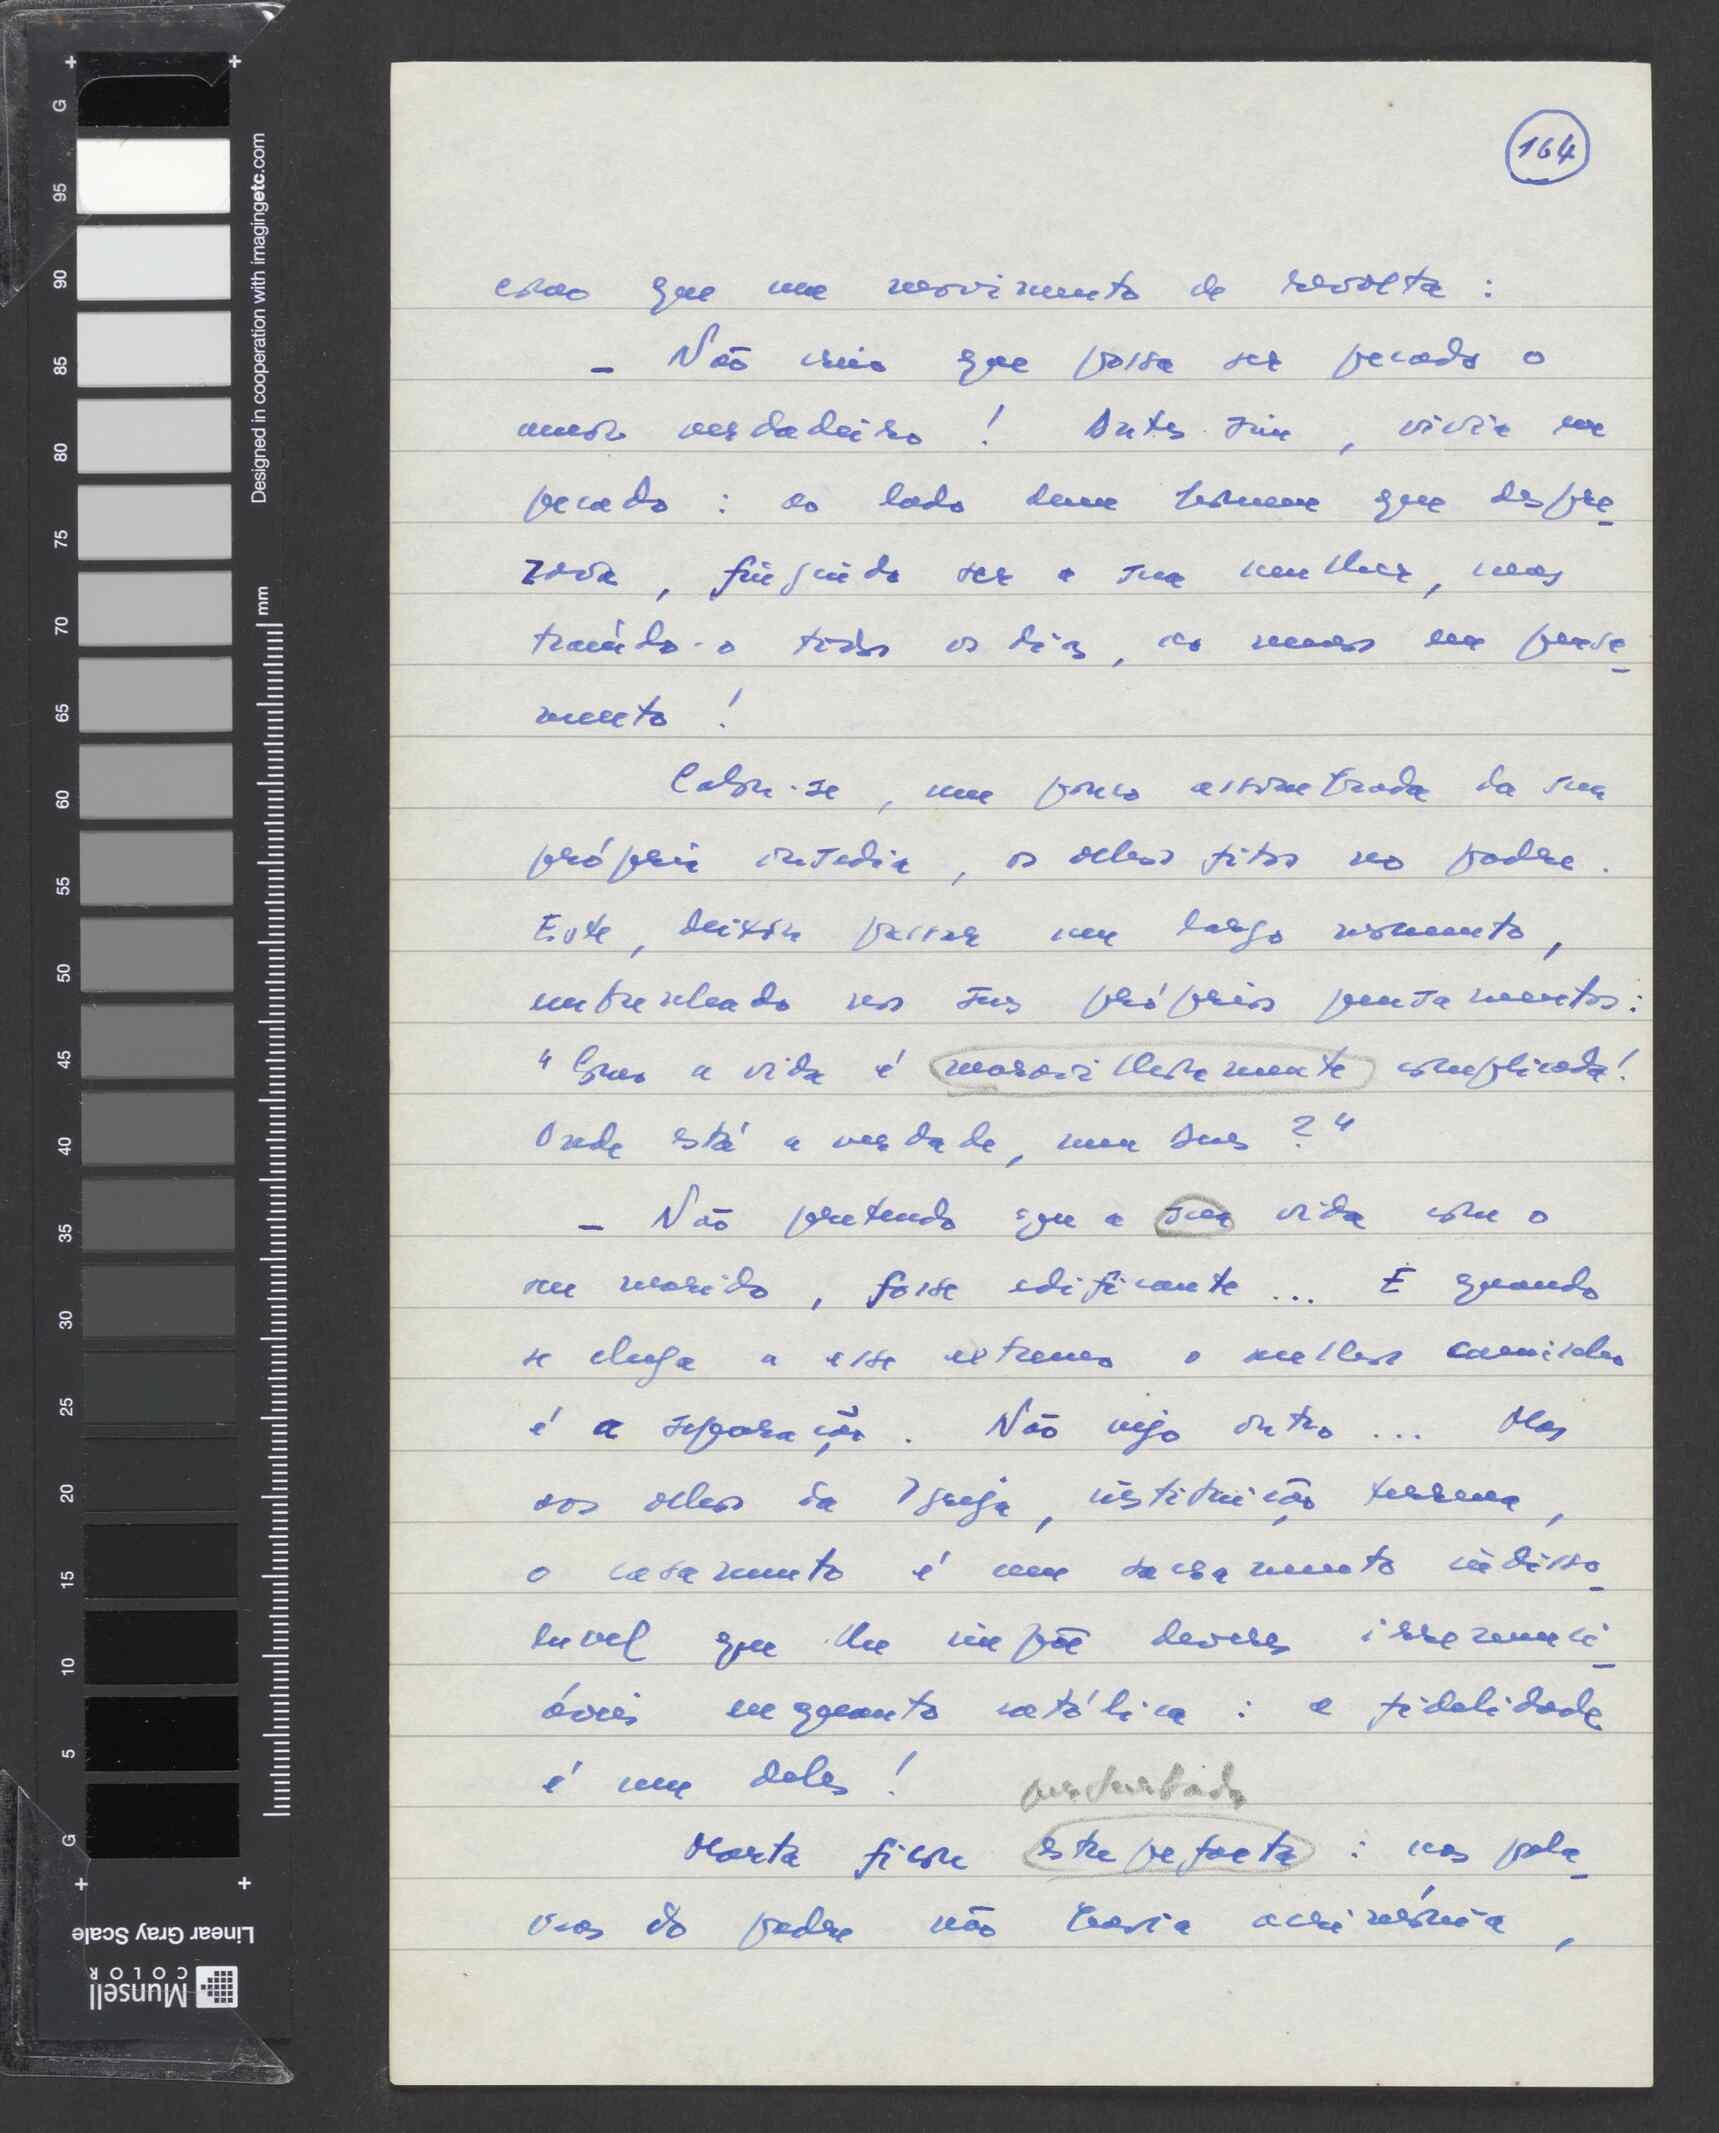 164
como que um movimento de revolta :
– Não creio que possa ser pecado o
amor verdadeiro ! Antes sim , vivia em
pecado : ao lado dum homem que despre-
zava , fingindo ser a sua mulher, mas
traindo-o todos os dias, ao menos em pensa-
mento !
Calou-se , um pouco assombrada da sua
própria ousadia , os olhos fitos no padre .
Este , deixou passar um largo momento ,
embrenhado nos seus próprios pensamentos :
" Como a vida é maravilhosamente complicada !
Onde está a verdade, meu Deus ? "
– Não pretendo que a sua vida com o
seu marido , fosse edificante ... E quando
se chega a esse extremo o melhor caminho
é a separação . Não vejo outro ... Mas
aos olhos da Igreja , instituição terrena ,
o casamento é um sacramento indisso-
luvel que lhe impõe deveres irrenunci-
áveis enquanto católica : a fidelidade
é um deles !
perturbada
Marta ficou estupefacta : nas pala-
vras do padre não havia acrimónia ,
Designed in cooperation with imagingetc.com
mm
G 95 90 85 80 75 70 65 60 55 50 45 40 35 30 25 20 15 10 5 G
Linear Gray Scale
Munsell
COLOR